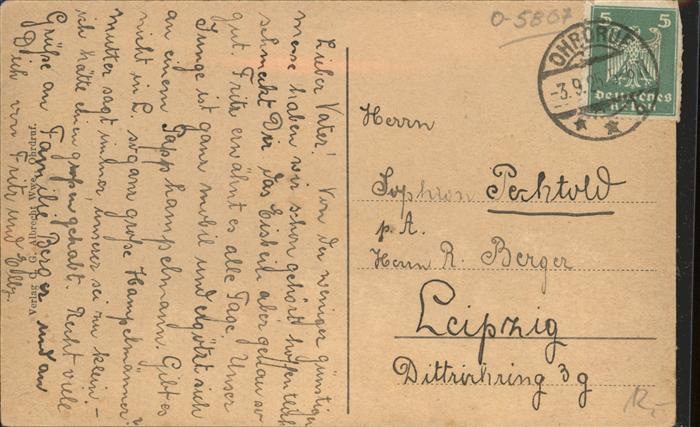 Lieber Vater! Von der weniger günstigen
Messe haben wir schon gehört hoffentlich
schmeckt Dir das Eisbein aber genau so
gut. Fritz erwähnt es alle Tage. Unser
Junge ist ganz mobil und ergötzt sich
an einem Papphampelmann. Gibt es
nicht in L. so ganz große Hampelmänner?
mutter sagt immer, unserer sei zu klein –
ich hätte einen großen gehabt. Recht viele
Grüße an Familie Berger und an
Dich von Fritz und Elly.
Verlag
Ohrdruf.
O-5807
5 5
Deutsches
Reich
OHRDRUF
-3.9.25
Herrn
Sophron Pechtold
p. A.
Herrn R. Berger
Leipzig
Dittrichring 3g
12,-